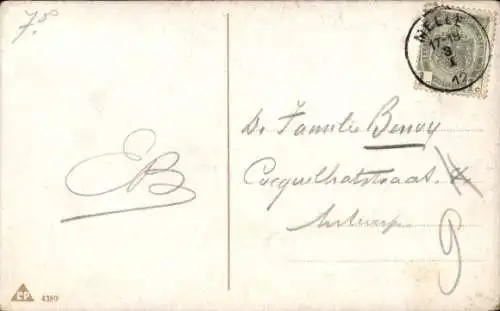 7.50
MELLE
17-18
9
I
12
EB
De Familie Benoy
Cocquilhatstraat.
9
Antwerp.
EP 4380